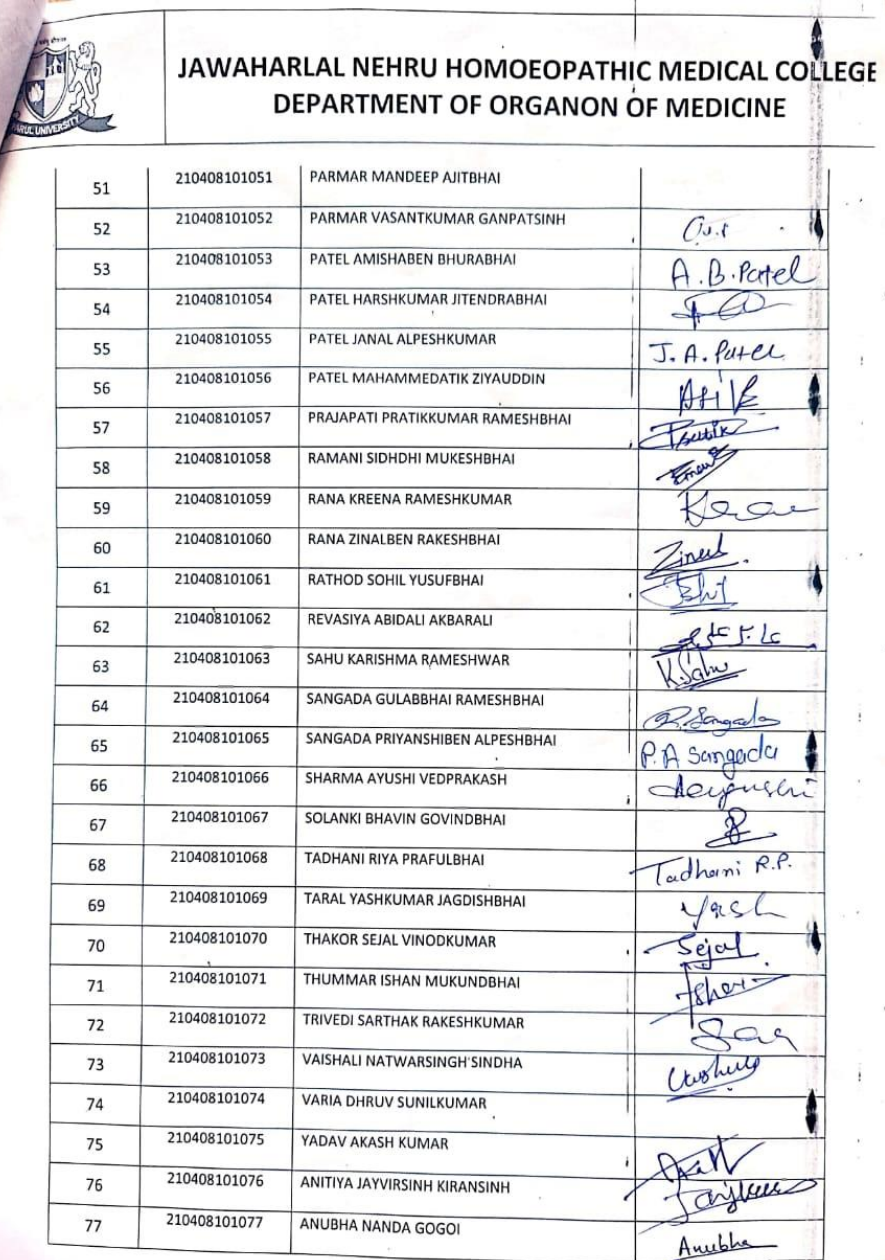 PARUL UNIVERSITY
JAWAHARLAL NEHRU HOMOEOPATHIC MEDICAL COLLEGE
DEPARTMENT OF ORGANON OF MEDICINE
51 210408101051 PARMAR MANDEEP AJITBHAI
52 210408101052 PARMAR VASANTKUMAR GANPATSINH
53 210408101053 PATEL AMISHABEN BHURABHAI A.B.Patel
54 210408101054 PATEL HARSHKUMAR JITENDRABHAI
55 210408101055 PATEL JANAL ALPESHKUMAR J.A.Patel
56 210408101056 PATEL MAHAMMEDATIK ZIYAUDDIN
57 210408101057 PRAJAPATI PRATIKKUMAR RAMESHBHAI
58 210408101058 RAMANI SIDHDHI MUKESHBHAI
59 210408101059 RANA KREENA RAMESHKUMAR
60 210408101060 RANA ZINALBEN RAKESHBHAI Zinal
61 210408101061 RATHOD SOHIL YUSUFBHAI
62 210408101062 REVASIYA ABIDALI AKBARALI
63 210408101063 SAHU KARISHMA RAMESHWAR K.Sahu
64 210408101064 SANGADA GULABBHAI RAMESHBHAI Sangada
65 210408101065 SANGADA PRIYANSHIBEN ALPESHBHAI P.A Sangada
66 210408101066 SHARMA AYUSHI VEDPRAKASH
67 210408101067 SOLANKI BHAVIN GOVINDBHAI
68 210408101068 TADHANI RIYA PRAFULBHAI Tadhani R.P.
69 210408101069 TARAL YASHKUMAR JAGDISHBHAI Yash
70 210408101070 THAKOR SEJAL VINODKUMAR Sejal
71 210408101071 THUMMAR ISHAN MUKUNDBHAI
72 210408101072 TRIVEDI SARTHAK RAKESHKUMAR
73 210408101073 VAISHALI NATWARSINGH SINDHA
74 210408101074 VARIA DHRUV SUNILKUMAR
75 210408101075 YADAV AKASH KUMAR
76 210408101076 ANITIYA JAYVIRSINH KIRANSINH
77 210408101077 ANUBHA NANDA GOGOI Anubha